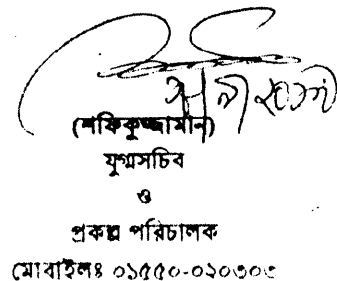 (শফিকুজ্জামান)
যুগ্মসচিব
ও
প্রকল্প পরিচালক
মোবাইলঃ ০১৫৫০-০২০৩০৩